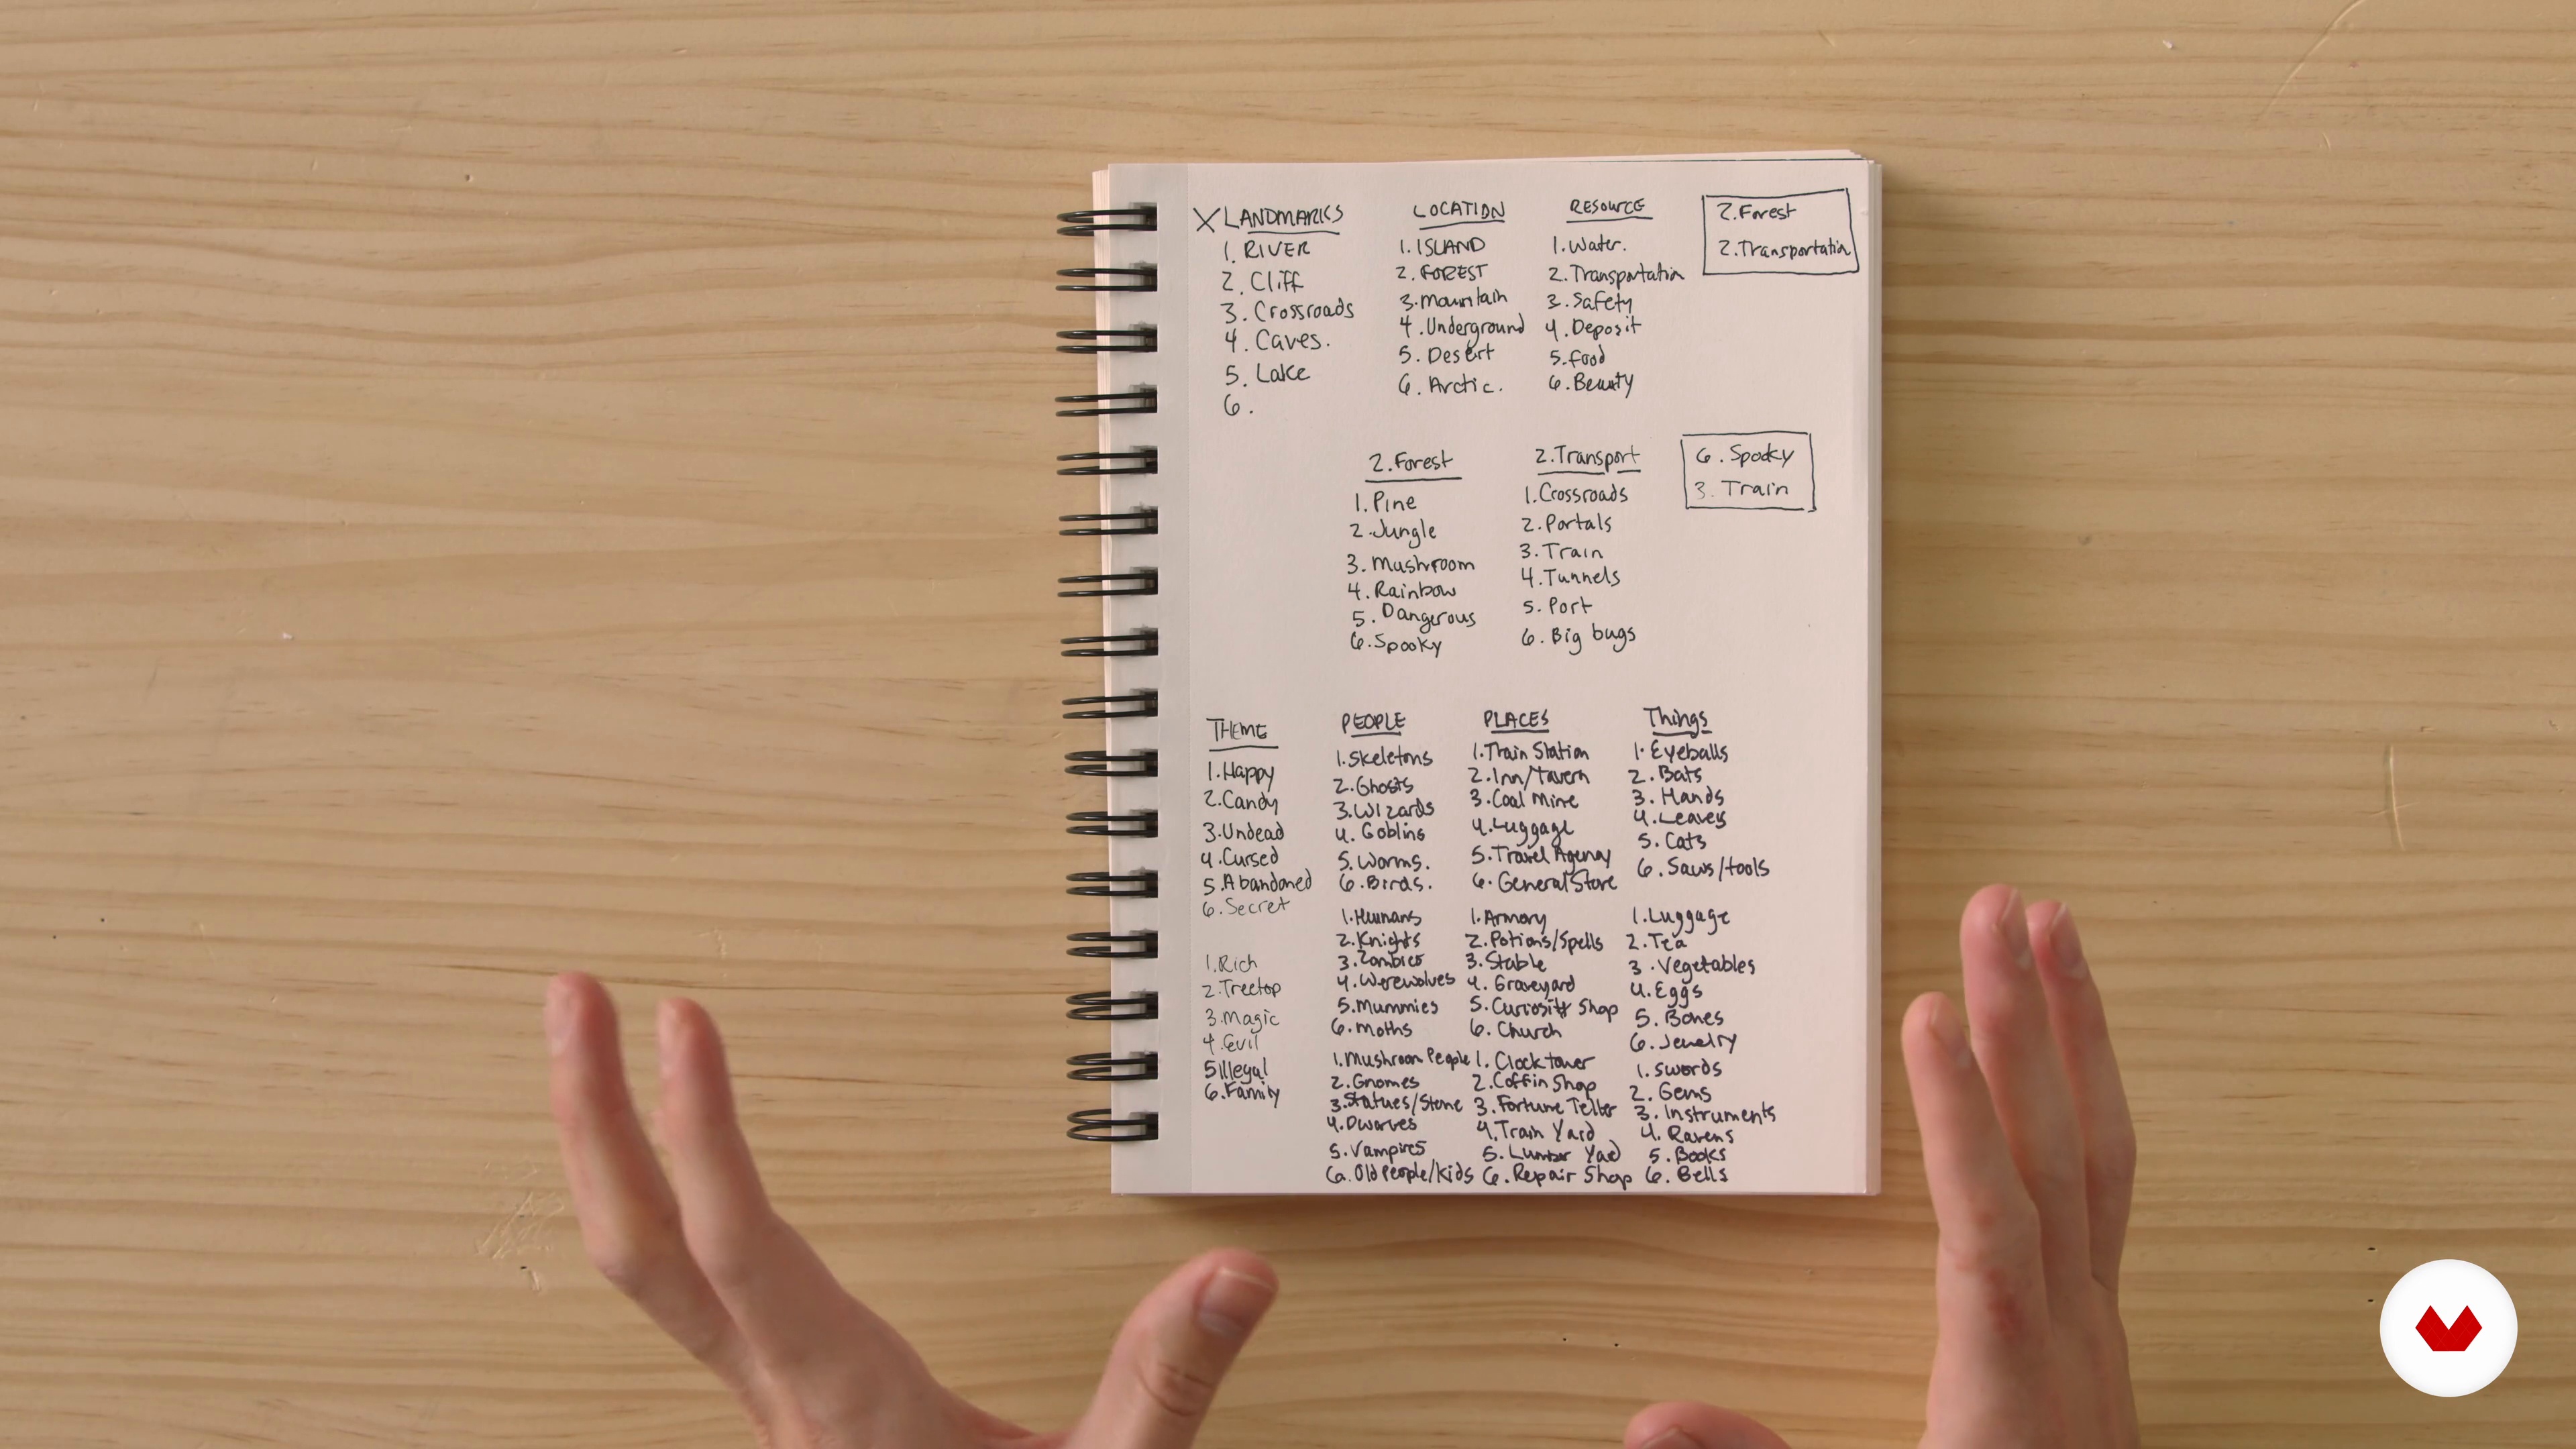 X LANDMARKS
1. RIVER
2. Cliff
3. Crossroads
4. Caves.
5. Lake
6.
LOCATION
1. ISLAND
2. FOREST
3. mountain
4. Underground
5. Desert
6. Arctic.
RESOURCE
1. Water.
2. Transportation
3. Safety
4. Deposit
5. food
6. Beauty
2. Forest
2. Transportation
2. Forest
1. Pine
2. Jungle
3. Mushroom
4. Rainbow
5. Dangerous
6. Spooky
2. Transport
1. Crossroads
2. Portals
3. Train
4. Tunnels
5. Port
6. Big bugs
6. Spooky
3. Train
THEME
1. Happy
2. Candy
3. Undead
4. Cursed
5. Abandoned
6. Secret
1. Rich
2. Treetop
3. Magic
4. Evil
5 Illegal
6. Family
PEOPLE
1. Skeletons
2. Ghosts
3. Wizards
4. Goblins
5. Worms.
6. Birds.
1. Humans
2. Knights
3. Zombies
4. Werewolves
5. Mummies
6. Moths
1. Mushroom People
2. Gnomes
3. Statues/Stone
4. Dwarves
5. Vampires
6. Old People/Kids
PLACES
1. Train Station
2. Inn/Tavern
3. Coal Mine
4. Luggage
5. Travel Agency
6. General Store
1. Armory
2. Potions/Spells
3. Stable
4. Graveyard
5. Curiosity Shop
6. Church
1. Clock tower
2. Coffin Shop
3. Fortune Teller
4. Train Yard
5. Lumber Yard
6. Repair Shop
Things
1. Eyeballs
2. Bats
3. Hands
4. Leaves
5. Cats
6. Saws/tools
1. Luggage
2. Tea
3. Vegetables
4. Eggs
5. Bones
6. Jewelry
1. Swords
2. Gems
3. Instruments
4. Ravens
5. Books
6. Bells